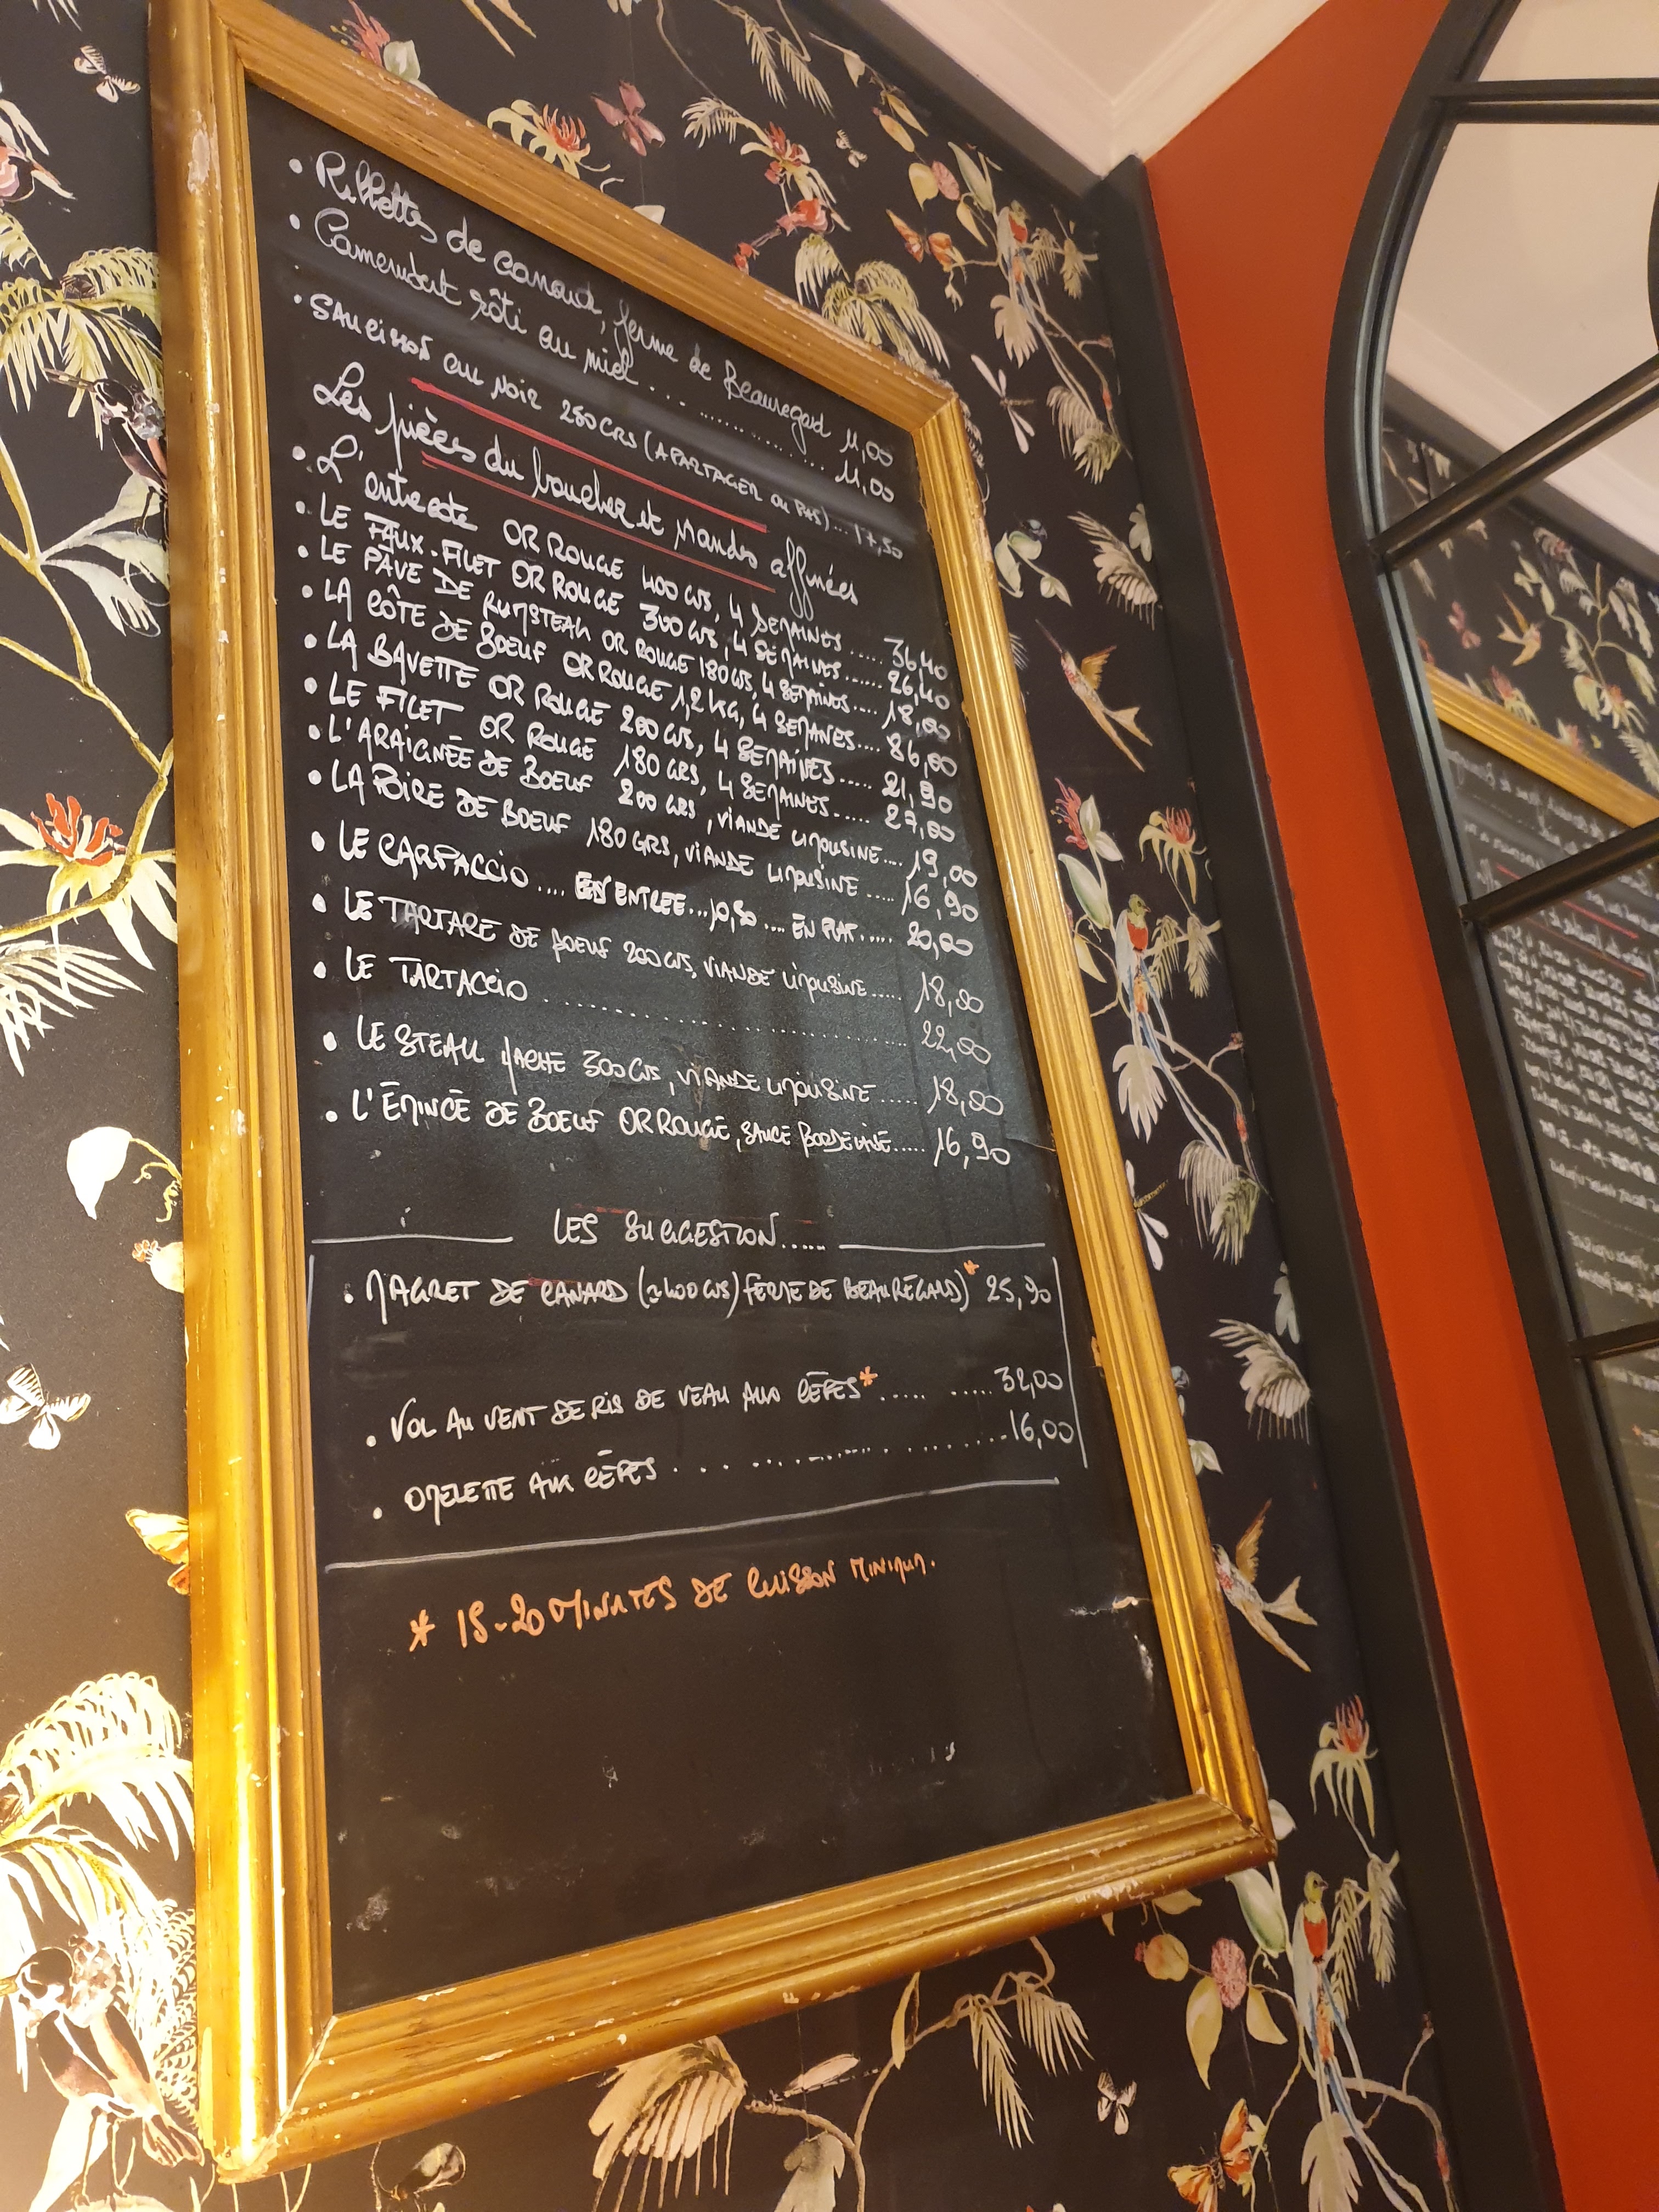 • Rillettes de canard, ferme de Beauregard 11,00
• Camembert rôti au miel . . . . . . . . . . . . 11,00
• SAUCISSON AU NOIR 250 GRS (A PARTAGER OU PAS) ... 17,50
Les pièces du boucher et viandes affinées
• L'entrecote OR ROUGE 400 GRS, 4 SEMAINES ..... 36,40
• LE FAUX-FILET OR ROUGE 300 GRS, 4 SEMAINES ...... 26,40
• LE PAVE DE RUMSTEAK OR ROUGE 180 GRS, 4 SEMAINES .... 18,00
• LA CÔTE DE BOEUF OR ROUGE 1,2 KG, 4 SEMAINES .... 86,00
• LA BAVETTE OR ROUGE 200 GRS, 4 SEMAINES ..... 21,90
• LE FILET OR ROUGE 180 GRS, 4 SEMAINES ..... 27,00
• L'ARAIGNÉE DE BOEUF 200 GRS, VIANDE LIMOUSINE .... 19,00
• LA POIRE DE BOEUF 180 GRS, VIANDE LIMOUSINE .... 16,90
• LE CARPACCIO .... EN ENTREE ... 10,50 .... EN PLAT ..... 20,00
• LE TARTARE DE BOEUF 200 GRS, VIANDE LIMOUSINE ..... 18,00
• LE TARTACCIO . . . . . . . . . . . . . . . 22,00
• LE STEAK HACHE 300 GRS, VIANDE LIMOUSINE ..... 18,00
• L'ÉMINCÉ DE BOEUF OR ROUGE, SAUCE BORDELAISE ..... 16,90
LES SUGGESTION......
• MAGRET DE CANARD (± 400 GRS) FERME DE BEAUREGARD)* 25,90
• VOL AU VENT DE RIS DE VEAU AUX CÊPES* ..... ..... 32,00
• OMELETTE AUX CÊPES . . . . . . . . . . . . 16,00
* 15-20 MINUTES DE CUISSON MINIMUM.